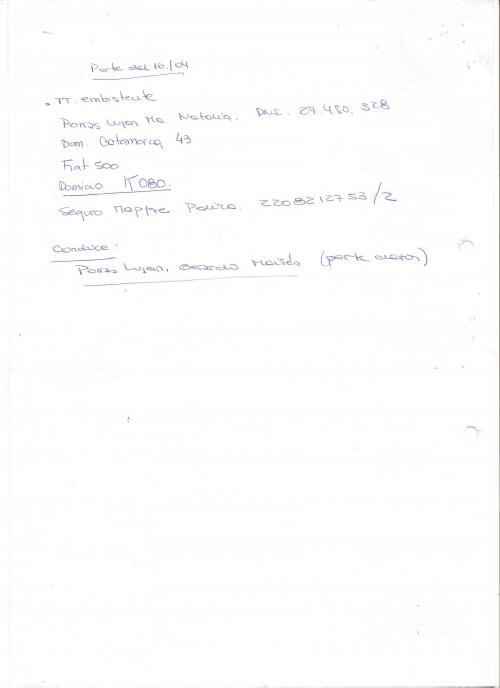 Parte del 10/04
. TT. embistente
Porras Lujan Ma. Natalia. DNI. 27.480.328
Dom. Catamarca 43
Fiat 500
Dominio K080.
Seguro Mapfre Poliza. 2208212753/2
Conduce:
Porras Lujan, Gerardo Moisés (parte